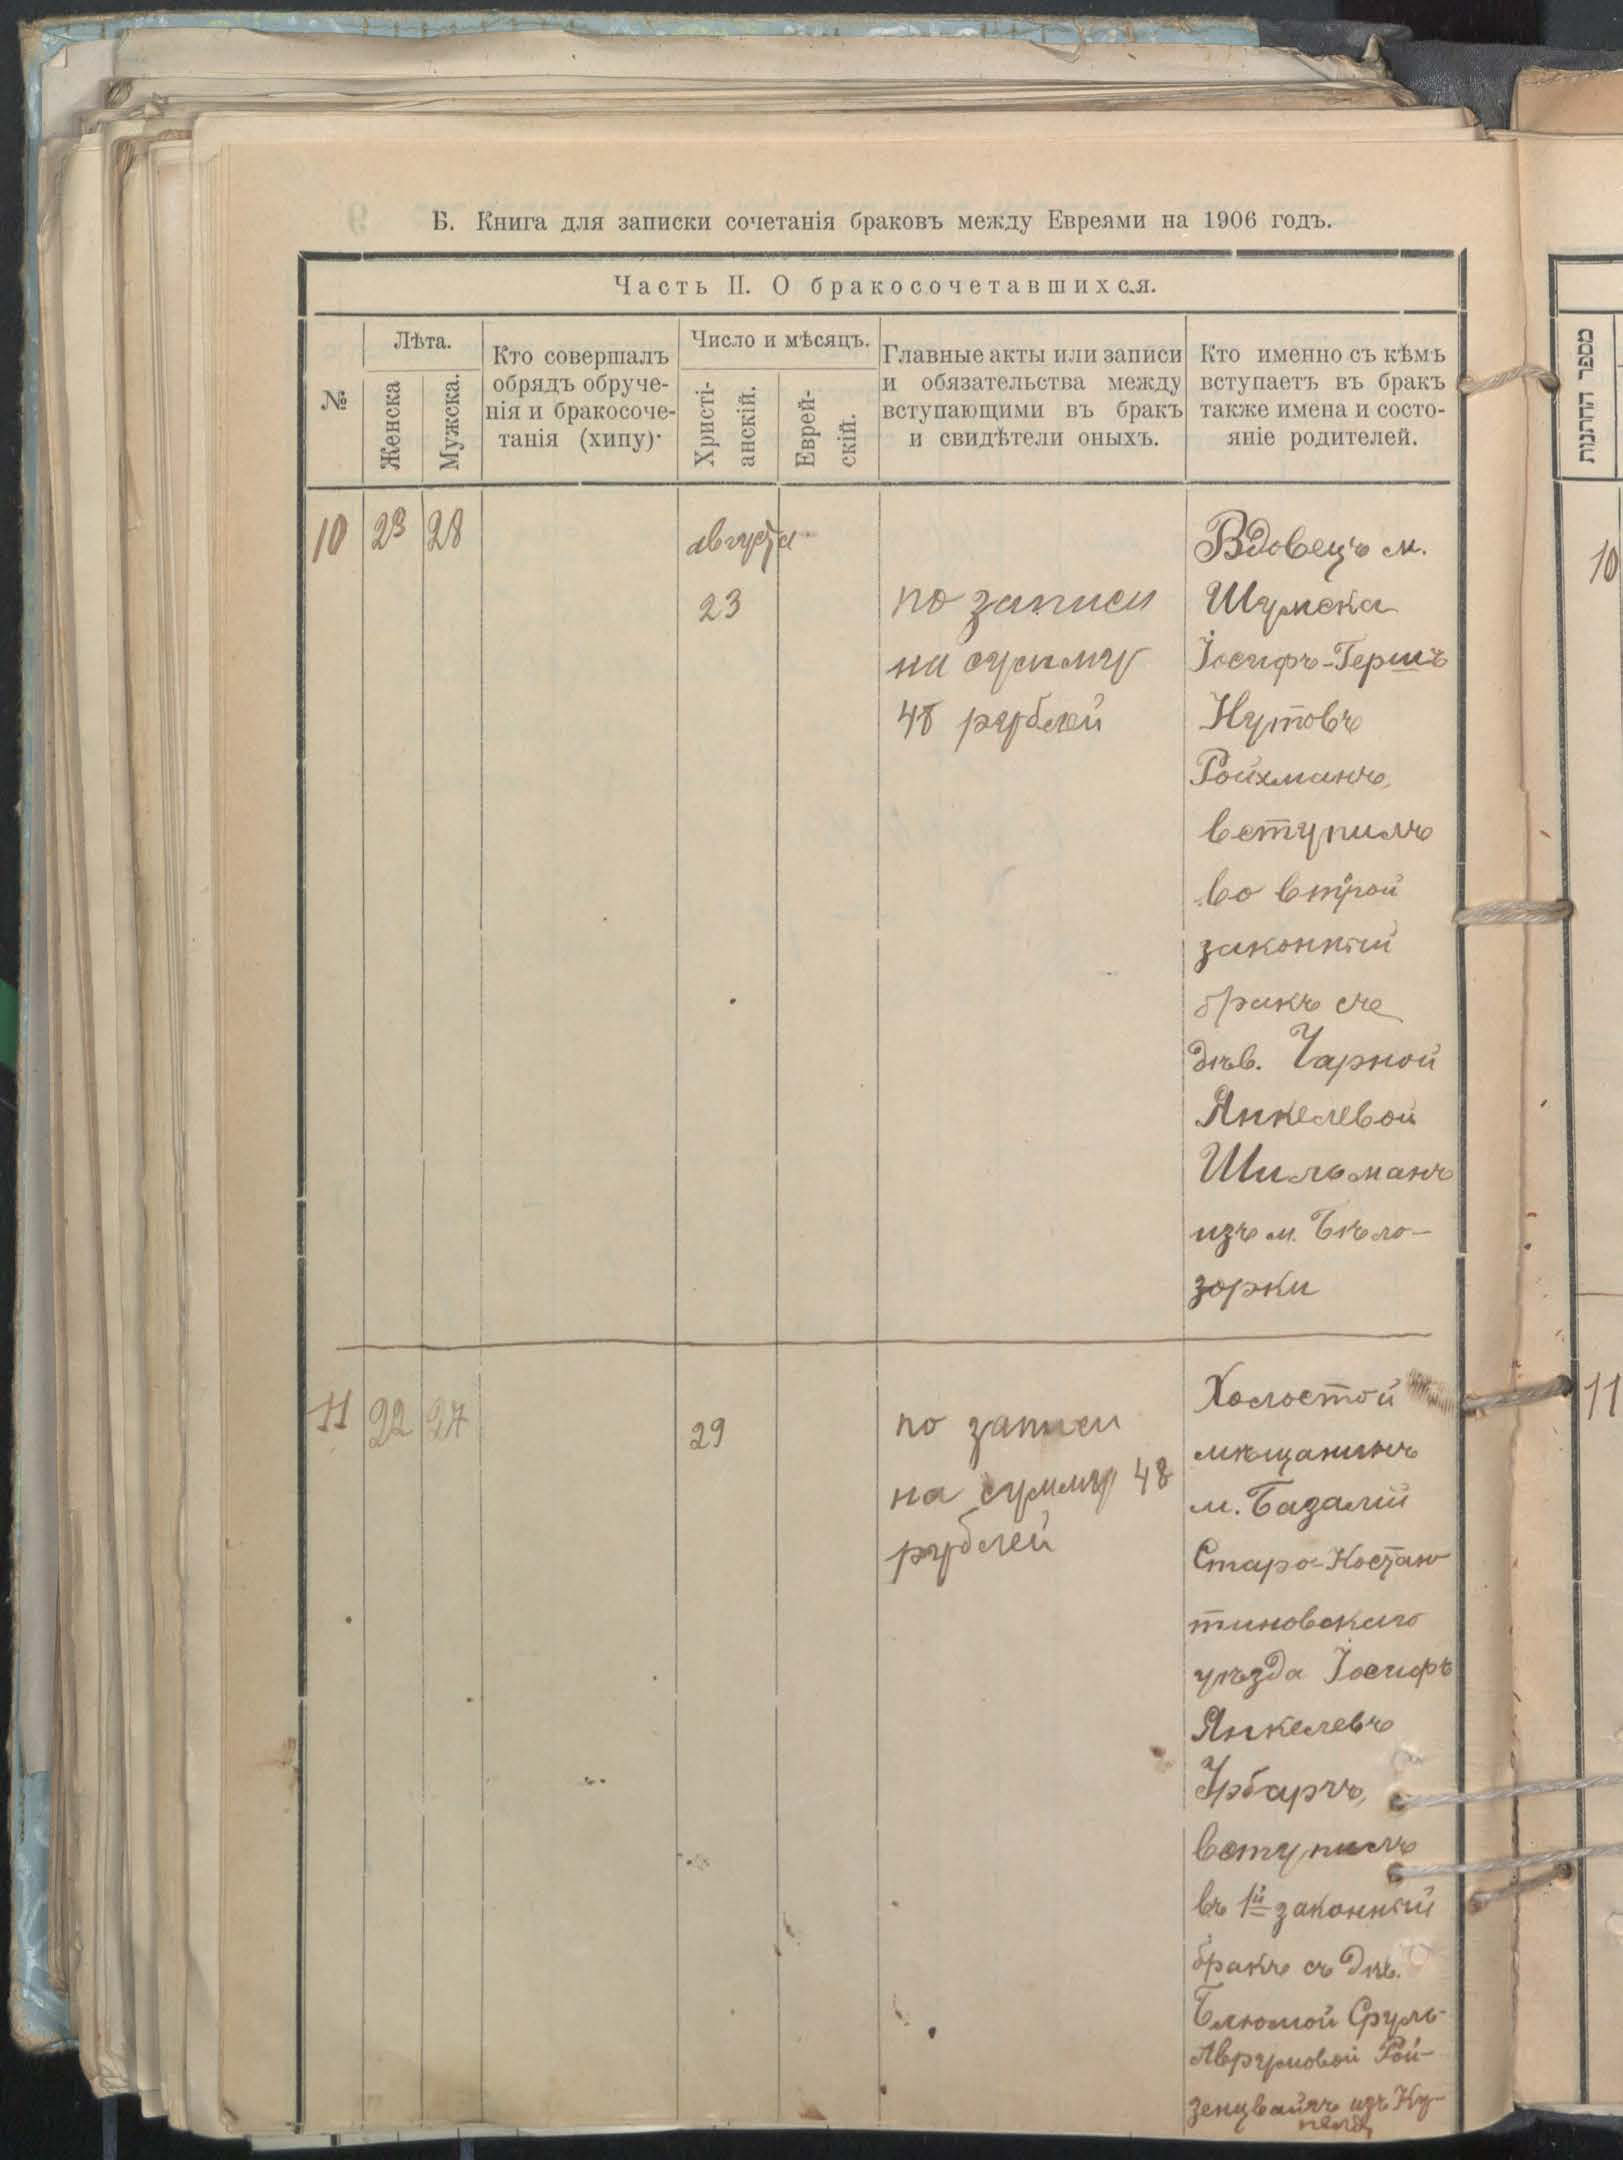 Б. Книга для записки сочетанія браковъ между Евреями на 1906 годъ.
Часть II. О бракосочетавшихся.
№
Лѣта.
Женска
Мужска.
Кто совершалъ
обрядъ обруче-
нія и бракосоче-
танія (хипу).
Число и мѣсяцъ.
Христі-
анскій.
Еврей-
скій.
Главные акты или записи
и обязательства между
вступающими въ бракъ
и свидѣтели оныхъ.
Кто именно съ кѣмъ
вступаетъ въ бракъ
также имена и состо-
яніе родителей.
מספר החתנות
10 23 28
августа
23
по записи
на сумму
48 рублей
Вдовецъ м.
Шумска
Іосифъ-Гершъ
Нутовъ
Ройхманъ,
вступилъ
во второй
законный
бракъ съ
дѣв. Чарной
Янкелевой
Шильманъ
изъ м. Бѣло-
зорки
10
11 22 27
29
по записи
на сумму 48
рублей
Холостой
мѣщанинъ
м. Базаліи
Старо-Костан
тиновскаго
уѣзда Іосифъ
Янкелевъ
Урбарчъ,
вступилъ
въ 1й законный
бракъ съ дѣв.
Блюмой Сруль-
Аврумовой Рой-
зенцвайгъ изъ Ку-
пеля
11